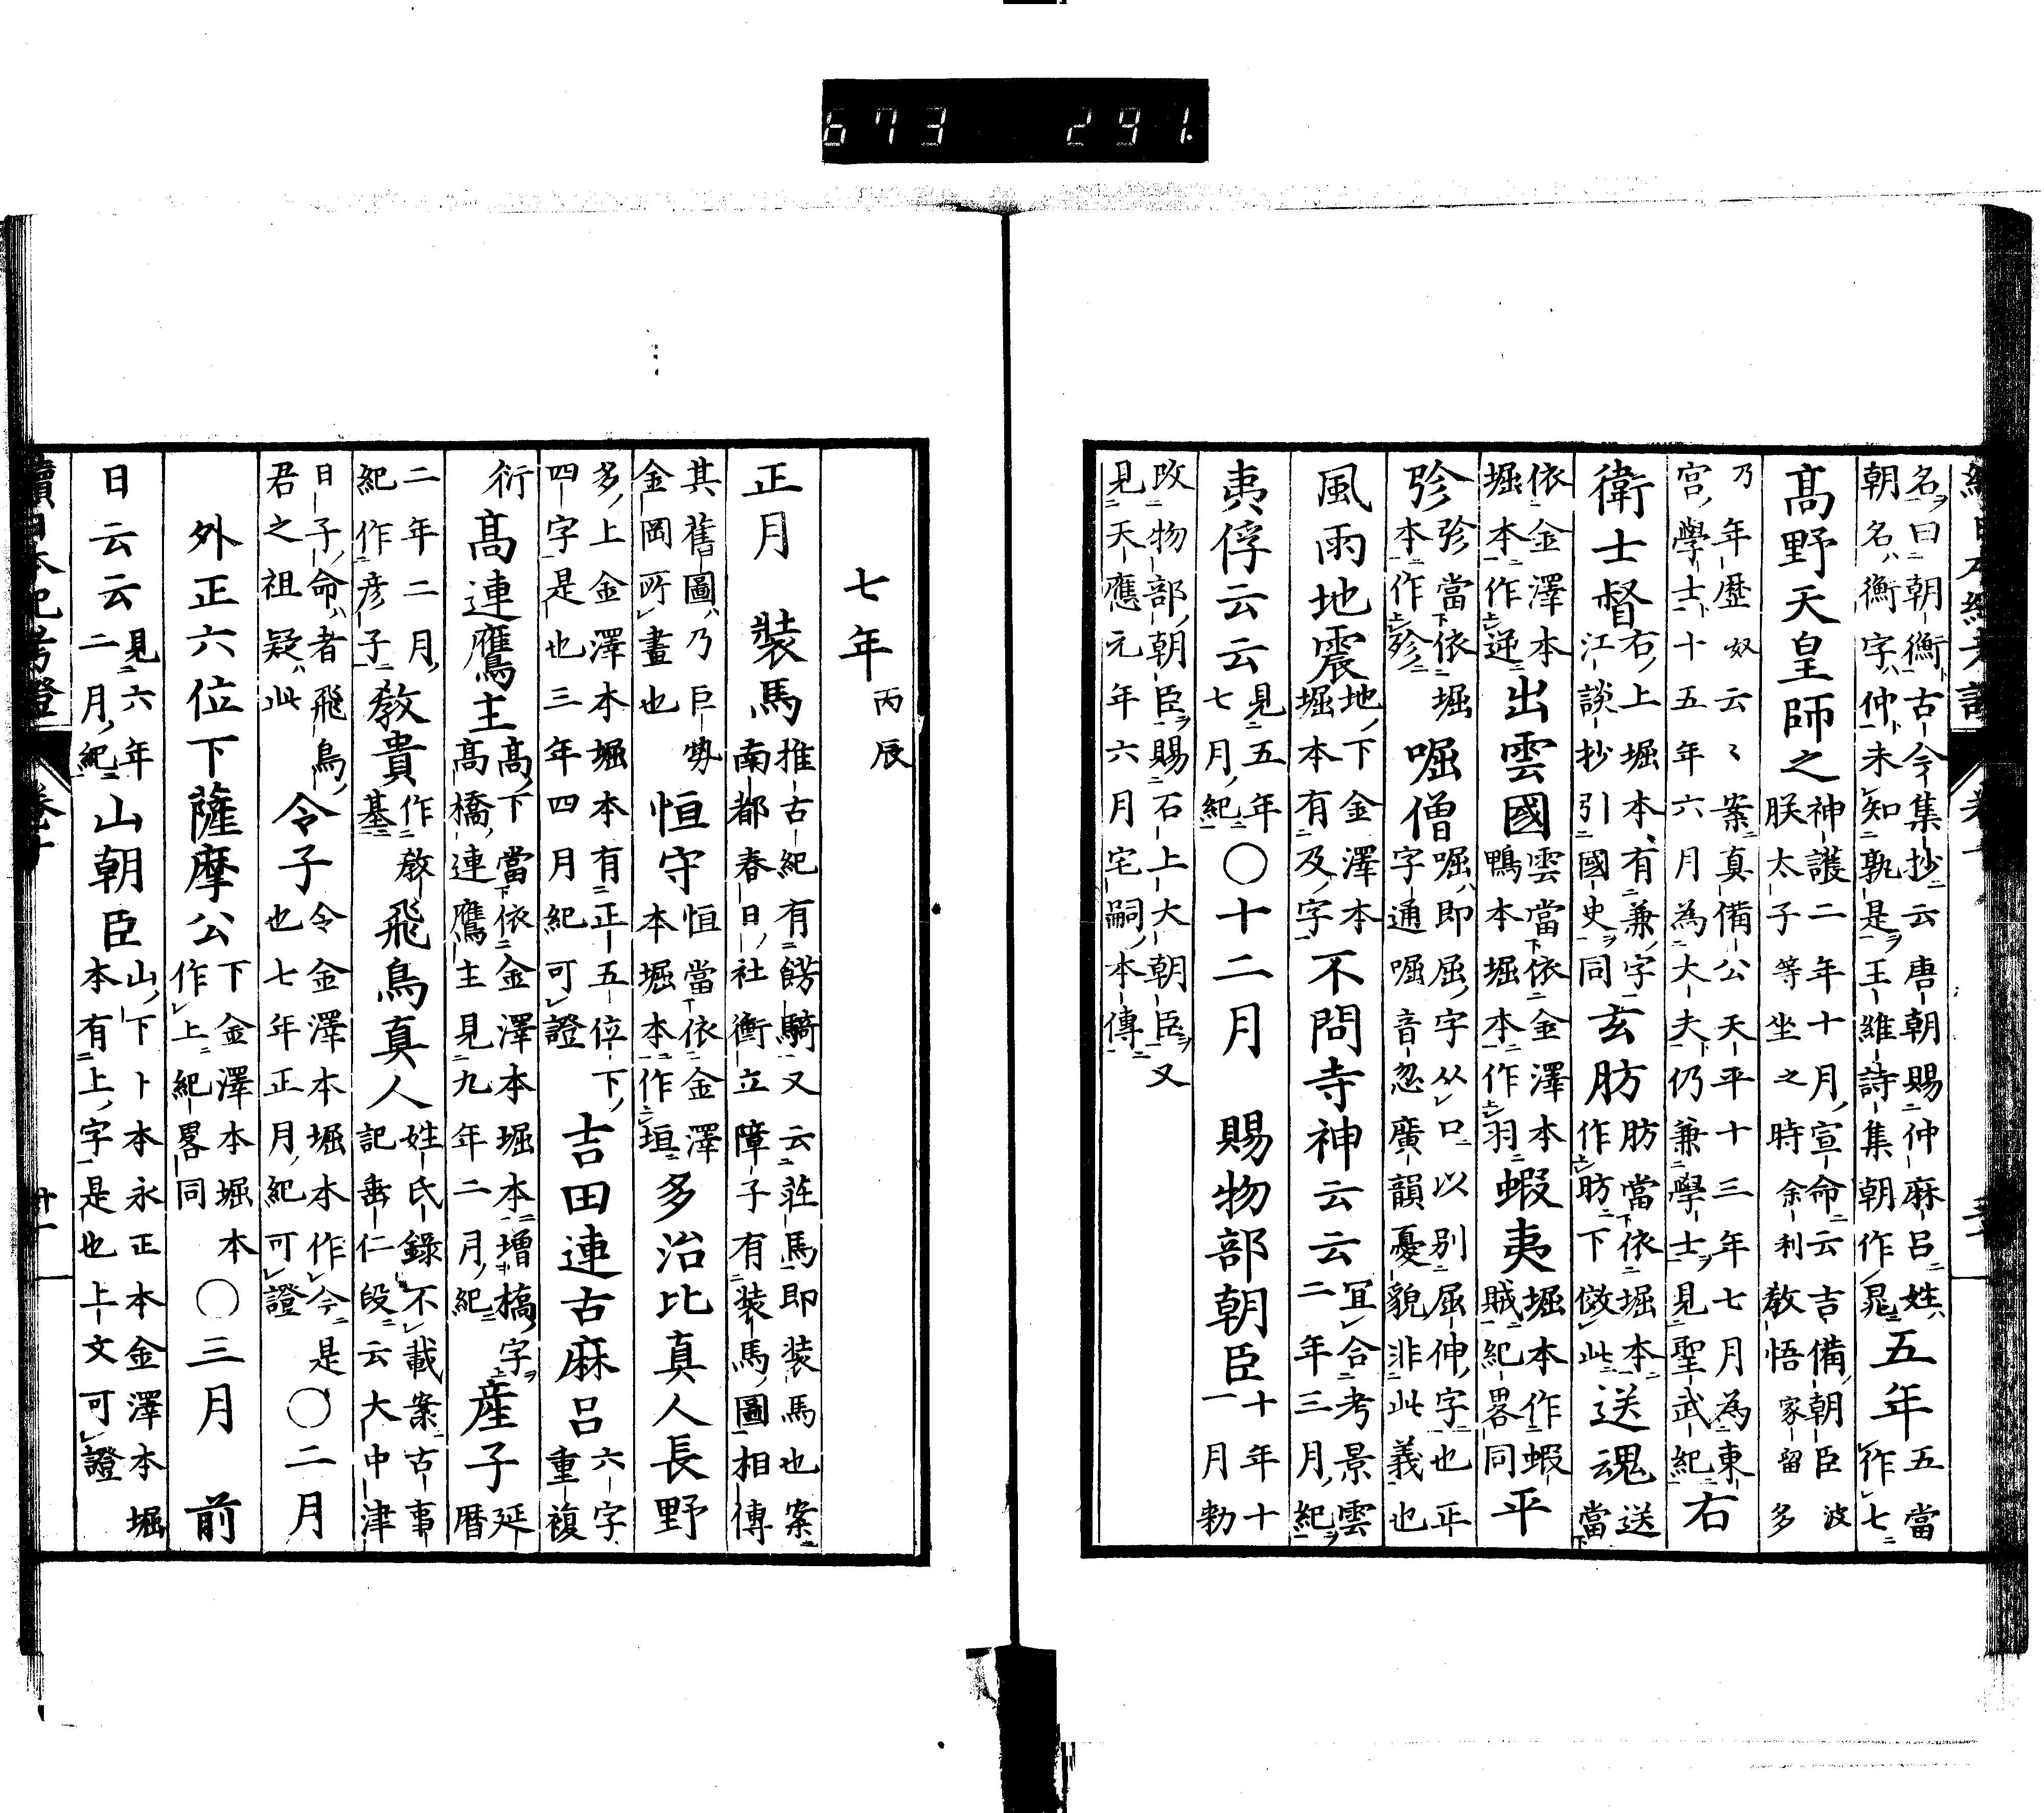 673 291.
名曰朝衡古今集抄云唐朝賜仲麻呂姓
朝名衡字仲未知孰是王維詩集朝作晁
五年
五當
作七
高野天皇師之
神護二年十月宣命云吉備朝臣波
朕太子等坐之時余利教悟家留多
乃年歷奴云〻案真備公天平十三年七月為東
宮學士十五年六月為大夫仍兼學士見聖武紀
右
衛士督
右上堀本有兼字
江談抄引國史同
玄肪
肪當依堀本
作昉下倣此
送魂
送當
依金澤本
堀本作逆
出雲國
雲當依金澤本
鴨本堀本作羽
蝦夷
堀本作蝦
賊紀畧同
平
弥
弥當依堀
本作殄
𡸳僧
𡸳即屈字从口以別屈伸字也正
字通𡸳音忽廣韻憂貌非此義也
風雨地震
地下金澤本
堀本有及字
不問寺神云云
宜合考景雲
二年三月紀
夷俘云云
見五年
七月紀
〇十二月 賜物部朝臣
十年十
一月勅
改物部朝臣賜石上大朝臣又
見天應元年六月宅嗣本傳
七年
丙辰
正月 裝馬
推古紀有餝騎又云莊馬即裝馬也案
南都春日社衝立障子有裝馬圖相傳
其舊圖乃巨勢
金岡所畫也
恒守
恒當依金澤
本堀本作垣
多治比真人長野
多上金澤本堀本有正五位下
四字是也三年四月紀可證
吉田連古麻呂
六字
重複
衍
高連鷹主
高下當依金澤本堀本增橋字
高橋連鷹主見九年二月紀
産子
延
暦
二年二月
紀作彦子
教貴
作教
基
飛鳥真人
姓氏錄不載案古事
記垂仁段云大中津
日子命者飛鳥
君之祖疑此
令子
令金澤本堀本作今是
也七年正月紀可證
〇二月
外正六位下薩摩公
下金澤本堀本
作上紀畧同
〇三月 前
日云云
見六年
二月紀
山朝臣
山下卜本永正本金澤本堀
本有上字是也上文可證
續日本紀考證 卷十